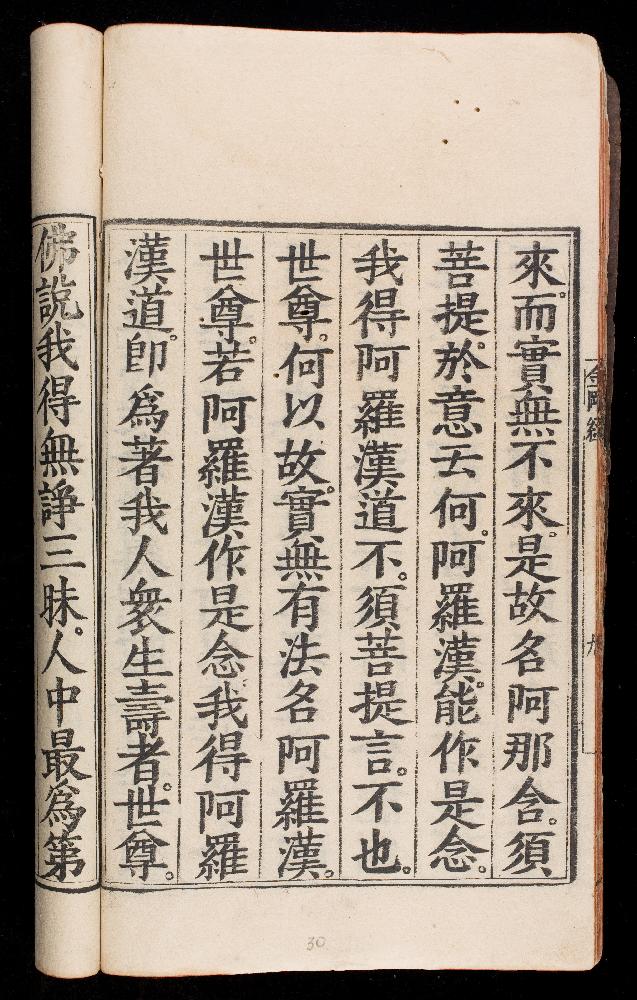 來。而實無不來。是故名阿那含。須
菩提。於意云何。阿羅漢。能作是念。
我得阿羅漢道不。須菩提言。不也。
世尊。何以故。實無有法名阿羅漢。
世尊。若阿羅漢作是念。我得阿羅
漢道。卽爲著我人衆生壽者。世尊。
佛說我得無諍三昧。人中最爲第
金剛經
九
30